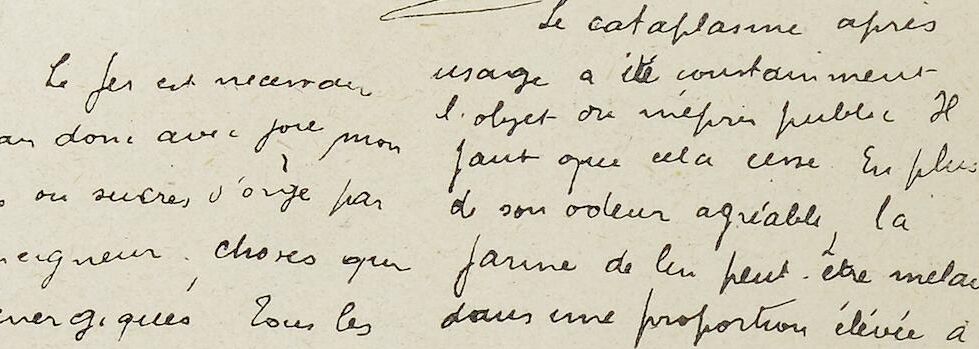 Le fer est nécessaire
donc avec joie mon
ou sucres d'orge par
seigneur. choses que
énergiques, Tous les
Le cataplasme après
usage a été constamment
l'objet du mépris public Il
faut que cela cesse. En plus
de son odeur agréable, la
farine de lin peut-être mélan
dans une proportion élévée à